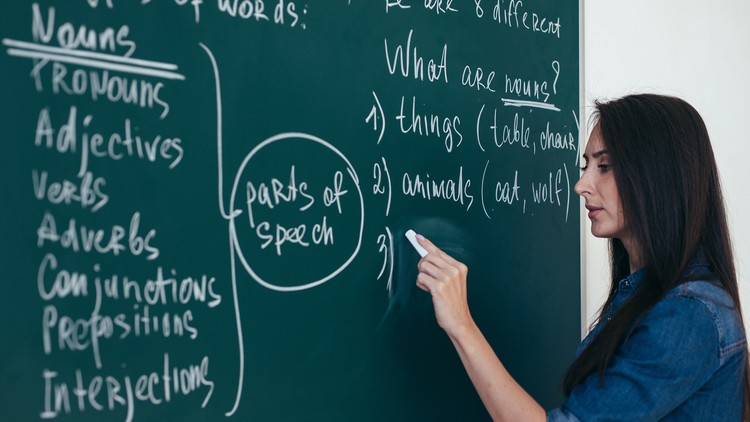 of words:
Nouns
Pronouns
Adjectives
Verbs
Adverbs
Conjunctions
Prepositions
Interjections
parts of
speech
are 8 different
What are nouns?
1) things (table, chair)
2) animals (cat, wolf)
3)